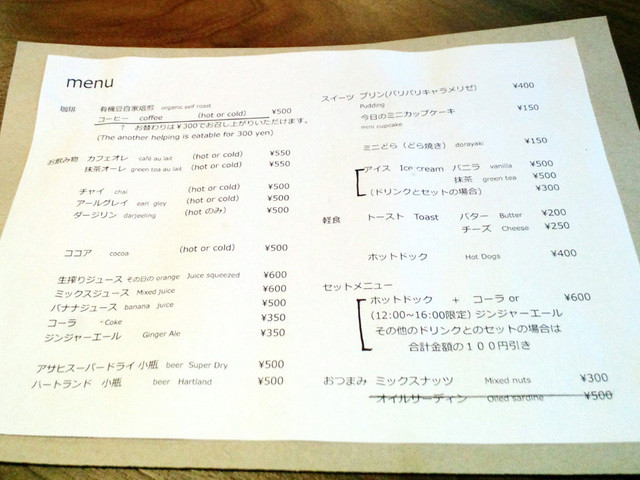 menu
珈琲 有機豆自家焙煎 organic self roast
コーヒー coffee (hot or cold) ¥500
↑ お替わりは¥300でお召し上がりいただけます。
(The another helping is eatable for 300 yen)
お飲み物 カフェオレ café au lait (hot or cold) ¥550
抹茶オーレ green tea au lait (hot or cold) ¥550
チャイ chai (hot or cold) ¥500
アールグレイ earl gley (hot or cold) ¥500
ダージリン darjeeling (hot のみ) ¥500
ココア cocoa (hot or cold) ¥500
生搾りジュース その日の orange Juice squeezed ¥600
ミックスジュース Mixed juice ¥600
バナナジュース banana juice ¥500
コーラ Coke ¥350
ジンジャーエール Ginger Ale ¥350
アサヒスーパードライ 小瓶 beer Super Dry ¥500
ハートランド 小瓶 beer Hartland ¥500
スイーツ プリン(パリパリキャラメリゼ) ¥400
Pudding
今日のミニカップケーキ ¥150
mini cupcake
ミニどら(どら焼き) dorayaki ¥150
アイス Ice cream バニラ vanilla ¥500
抹茶 green tea ¥500
(ドリンクとセットの場合) ¥300
軽食 トースト Toast バター Butter ¥200
チーズ Cheese ¥250
ホットドック Hot Dogs ¥400
セットメニュー
ホットドック + コーラ or ¥600
(12:00~16:00限定) ジンジャーエール
その他のドリンクとのセットの場合は
合計金額の100円引き
おつまみ ミックスナッツ Mixed nuts ¥300
オイルサーディン Oiled sardine ¥500